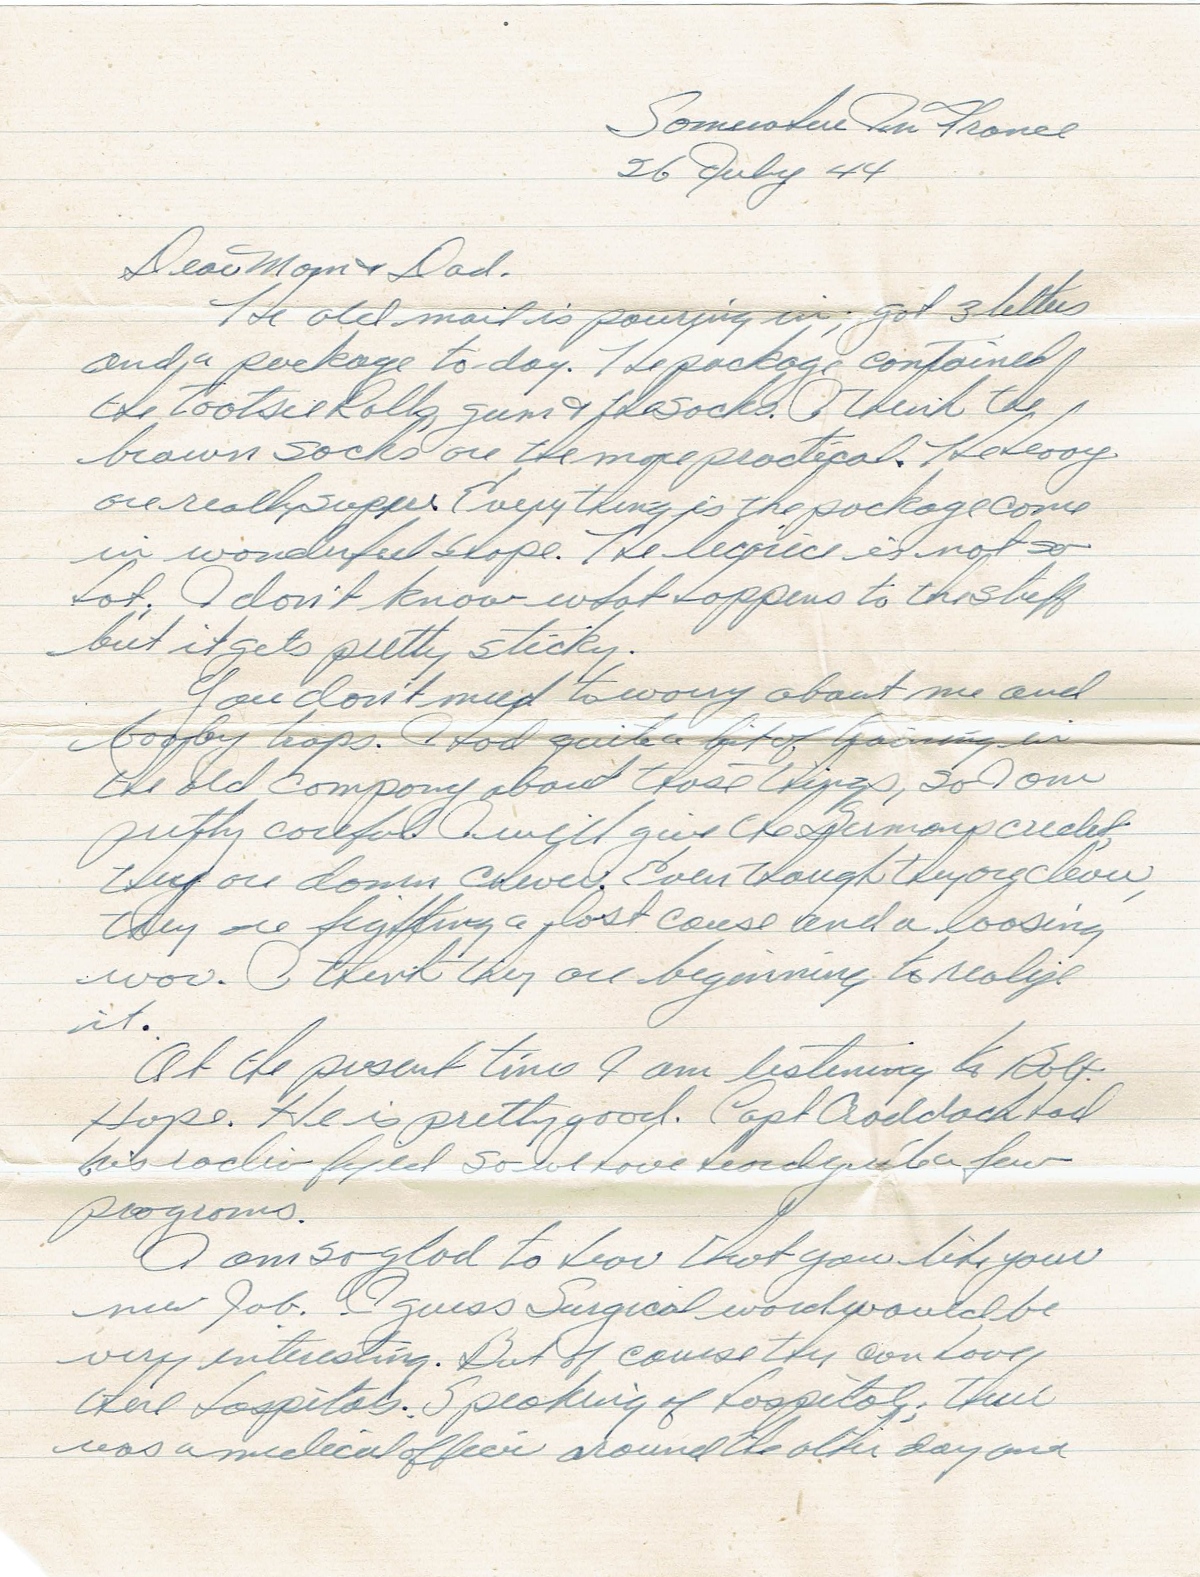 Somewhere In France
26 July 44
Dear Mom & Dad.
The old mail is pouring in; got 3 letters
and a package to-day. The package contained
the Tootsie Rolls, gum & the socks. I think the
brown socks are the more practical. The
are really super. Everything is the package come
in wonderful shape. The licorice is not so
hot, I don't know what happens to the stuff
but it gets pretty sticky.
You don't need to worry about me and
booby traps. I had quite a bit of training in
the old company about those things, so I am
pretty careful. I will give the Germans credit,
they are damn clever. Even though they are clever,
they are fighting a lost cause and a loosing
war. I think they are beginning to realize
it.
At the present time I am listening to Bob
Hope. He is pretty good. Capt Craddock had
his radio fixed so we have heard quite a few
programs.
I am so glad to hear that you like your
new Job. I guess Surgical ward would be
very interesting. But of course they can have
there hospitals. Speaking of hospitals; there
was a medical officer around the other day and